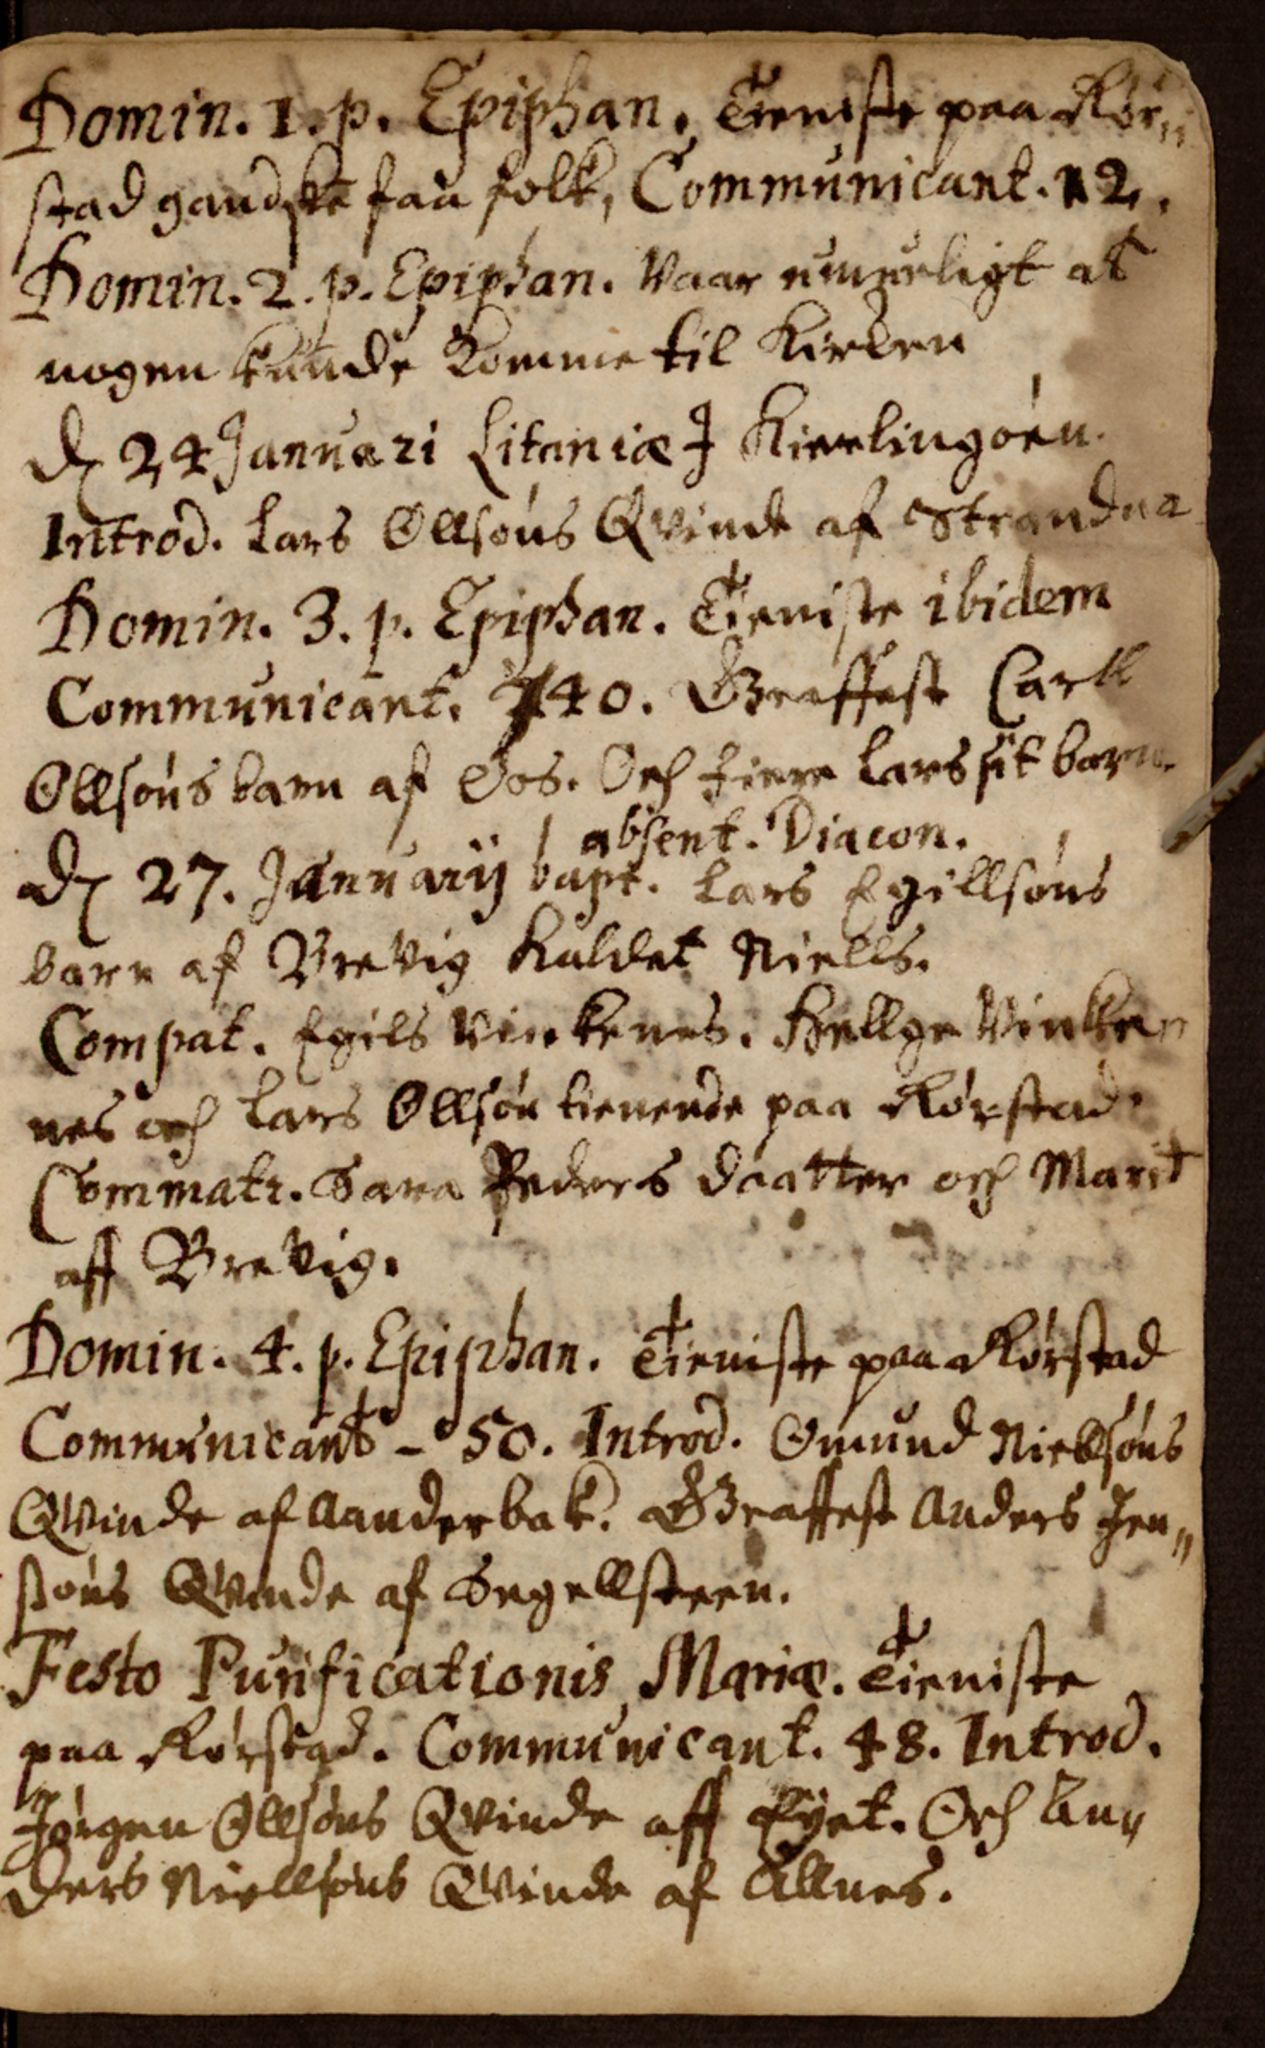 Domin. 1. p. Epiphan. Tieniste paa Rør„
stad gandske faa folk, Communicant. 12.
Domin. 2. p. Epiphan. Vaar umueligt at
nogen kunde komme til Kirken
D 24 Januari Litaniæ I Kierlingøen.
Introd. Lars Ollsøns Qvinde af Strandna
Domin. 3. p. Epiphan. Tieniste ibidem
Communicant. 140. Graffest Carll
Ollsøns barn af Gos. Och Lars sit barn.
absent. Diacon.
D 27. Januarij bapt. Lars Egillsøns
barn af Brevig Kaldet Niells.
Compat. Egils Vinkenes. Hellge Vinke„
nes och Lars Ollsøn tienende paa Rørstad.
Commatr. Sara Peders daatter och Marit
aff Brevig.
Domin. 4. p. Epiphan. Tieniste paa Rørstad
Communicant - 50. Introd. Omund Niellsøns
Qvinde af Aanderbak. Graffest Anders Jen„
søns Qvinde af Segellsteen.
Festo Purificationis Mariæ. Tieniste
paa Rørstad. Communicant. 48. Introd.
Jørgen Ollsøns Qvinde aff Eyet. Och An„
ders Niellsøns Qvinde af Allnes.